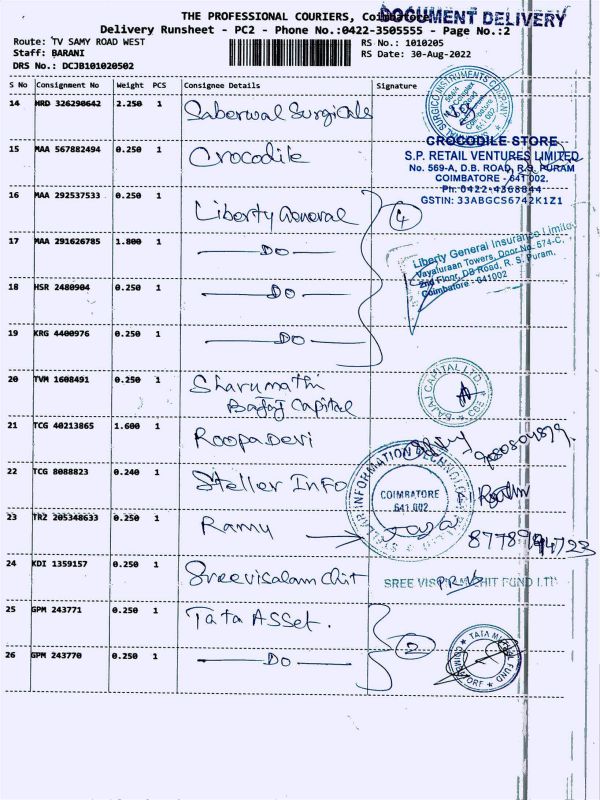 THE PROFESSIONAL COURIERS, Coimbatore
DOCUMENT DELIVERY
Delivery Runsheet - PC2 - Phone No.:0422-3505555 - Page No.:2
Route: TV SAMY ROAD WEST
RS No.: 1010205
Staff: BARANI
RS Date: 30-Aug-2022
DRS No.: DCJB101020502
S No Consignment No Weight PCS Consignee Details Signature
14 HRD 326290642 2.250 1 Saberwal Surgicals
15 MAA 567882494 0.250 1 Crocodile
CROCODILE STORE
S.P. RETAIL VENTURES LIMITED
No. 569-A, D.B. ROAD, R.S. PURAM
COIMBATORE - 641 002.
Ph: 0422-4368844
GSTIN: 33ABGCS6742K1Z1
16 MAA 292537533 0.250 1 Liberty General 4
17 MAA 291626785 1.800 1 DO
Liberty General Insurance Limited
Vayaluraan Towers, Door No. 574-C,
2nd Floor, DB Road, R. S. Puram,
Coimbatore - 641002
18 HSR 2480904 0.250 1 DO
19 KRG 4400976 0.250 1 DO
20 TVM 1608491 0.250 1 Sharumathi
Bajaj Capital
BAJAJ CAPITAL LTD.
CBE
21 TCG 40213865 1.600 1 Roopa Devi
22 TCG 8088823 0.240 1 Steller Info
STELLAR INFORMATION TECHNOLOGY
COIMBATORE
641 002
23 TRZ 205348633 0.250 1 Ramu
24 KDI 1359157 0.250 1 Sreevisalam chit
25 GPM 243771 0.250 1 Tata Asset. 2
26 GPM 243770 0.250 1 DO
TATA MUTUAL FUND